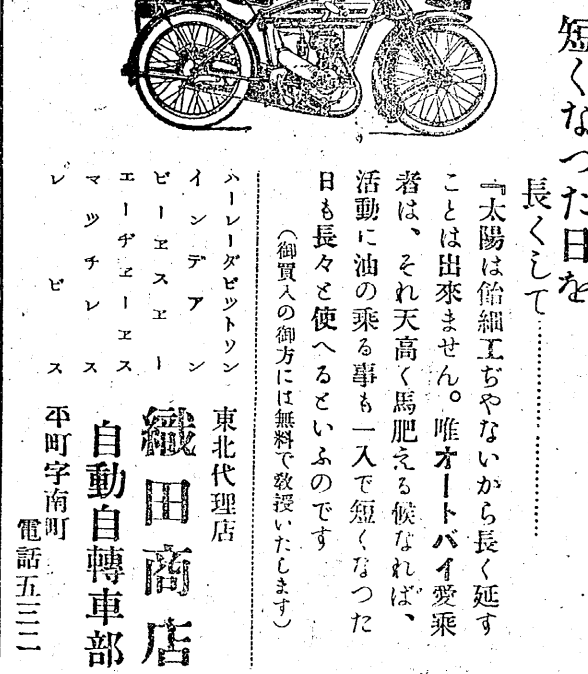 短くなつた日を
長くして…………………
『太陽は飴細工ぢやないから長く延す
ことは出來ません。唯オートバイ愛乘
者は、それ天高く馬肥える候なれば、
活動に油の乘る事も一入で短くなつた
日も長々と使へるといふのです
(御買入の御方には無料で敎授いたします)
ハーレーダビツトソン
インデアン
ビーエスエー
エーヂエーエス
マツチレス
レビス
東北代理店
織田商店
自動自轉車部
平町字南町
電話五三二